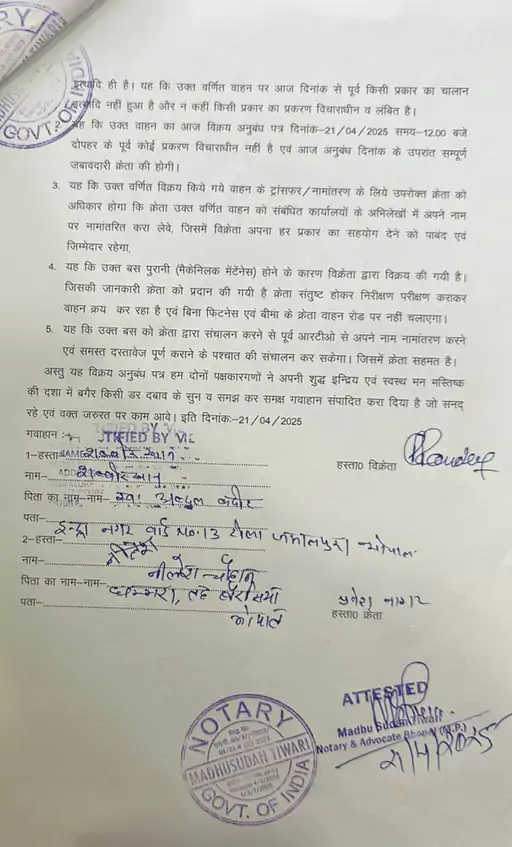 इत्यादि ही है। यह कि उक्त वर्णित वाहन पर आज दिनांक से पूर्व किसी प्रकार का चालान
इत्यादि नहीं हुआ है और न कहीं किसी प्रकार का प्रकरण विचाराधीन व लंबित है।
यह कि उक्त वाहन का आज विक्रय अनुबंध पत्र दिनांक–21/04/2025 समय–12.00 बजे
दोपहर के पूर्व कोई प्रकरण विचाराधीन नहीं है एवं आज अनुबंध दिनांक के उपरांत सम्पूर्ण
जबावदारी क्रेता की होगी।
3. यह कि उक्त वर्णित विक्रय किये गये वाहन के ट्रांसफर/नामांतरण के लिये उपरोक्त क्रेता को
अधिकार होगा कि क्रेता उक्त वर्णित वाहन को संबंधित कार्यालयों के अभिलेखों में अपने नाम
पर नामांतरित करा लेवे, जिसमें विक्रेता अपना हर प्रकार का सहयोग देने को पाबंद एवं
जिम्मेदार रहेगा,
4. यह कि उक्त बस पुरानी (मैकेनिलक मेंटेनेंस) होने के कारण विक्रेता द्वारा विक्रय की गयी है।
जिसकी जानकारी क्रेता को प्रदान की गयी है क्रेता संतुष्ट होकर निरीक्षण परीक्षण कराकर
वाहन क्रय कर रहा है एवं बिना फिटनेस एवं बीमा के क्रेता वाहन रोड पर नहीं चलाएगा।
5. यह कि उक्त बस को क्रेता द्वारा संचालन करने से पूर्व आरटीओ से अपने नाम नामांतरण करने
एवं समस्त दस्तावेज पूर्ण कराने के पश्चात की संचालन कर सकेगा। जिसमें क्रेता सहमत है।
अस्तु यह विक्रय अनुबंध पत्र हम दोनों पक्षकारगणों ने अपनी शुद्ध इन्द्रिय एवं स्वस्थ मन मस्तिष्क
की दशा में बगैर किसी डर दबाव के सुन व समझ कर समक्ष गवाहान संपादित करा दिया है जो सनद
रहे एवं वक्त जरुरत पर काम आवे। इति दिनांक:–21/04/2025
गवाहान :–
1–हस्ता
हस्ता0 विक्रेता
नाम– शब्बीर खान
पिता का नाम–नाम– स्व. अब्दुल कदीर
पता– इन्द्रा नगर वार्ड No. 13 टीला जमालपुरा भोपाल
2–हस्ता–
नाम– नीलेश चौहान
पिता का नाम–नाम–
पता– भोपाल
हस्ता0 क्रेता
ATTESTED
Madhu Sudan Tiwari
Notary & Advocate Bhopal (M.P.)
21/4/2025
NOTARY
MADHUSUDAN TIWARI
GOVT. OF INDIA